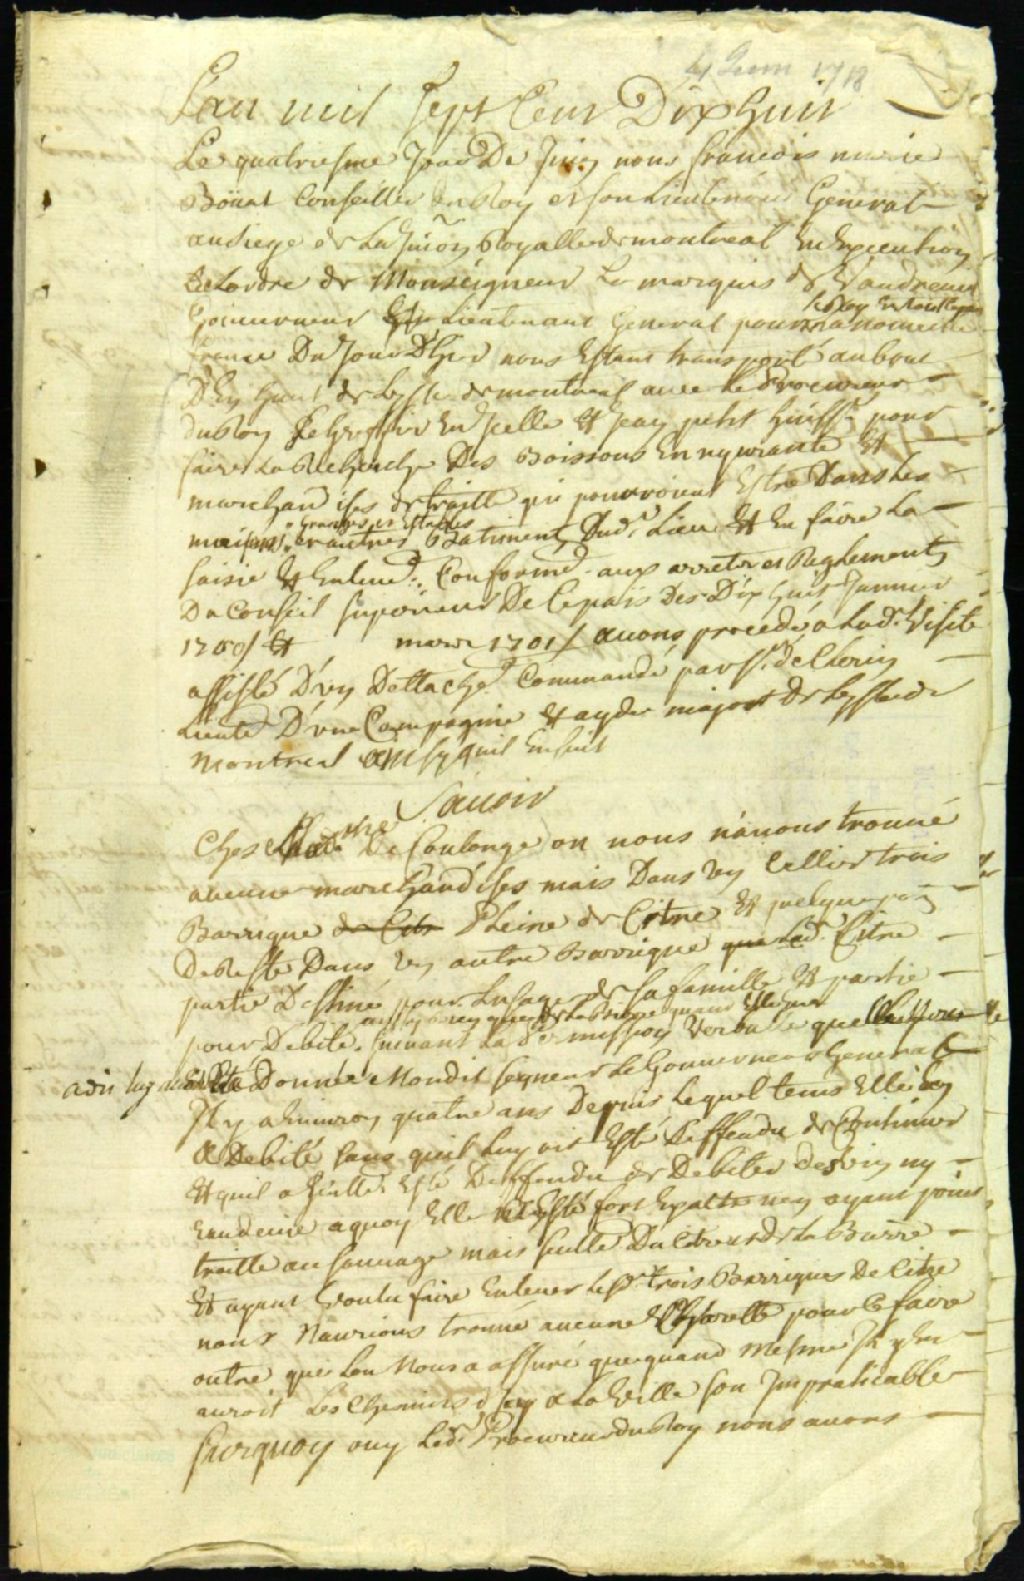 4 Juin 1718
L'an mil sept Cent Dix huit
Le quatriesme Jour De Juin nous francois marie
Boüat Conseiller du Roy et son Lieutenant General
au siege de La Juron Royalle de montreal En Execution
de Lordre de Monseigneur Le marquis de Vaudreuil
le Roy en toutte
Gouverneur Lieutenant General pour la nouvelle
france Du Jour D'hier nous Estant transporté au bout
D'En haut de Lysle de montreal avec Le Procureur
du Roy Le greffier En Icelle Et Jean petit huissr pour
faire La Recherche Des Boissons Ennyurante Et
marchandises de traitte qui pouroient Estre Dans les
granges et Estables
maisons et autres Batiments Dud. Lieu Et En faire La
saisie Et Enlevd. Conformd. aux arrets et Reglements
Du Conseil superieur De Ce pais Des Dix huit Janvier
1700/ Et mars 1701/ avons procedé a Lad. Visite
assisté D'un Dettachemt Commandé par Sr. de
Lieutet D'une Compagnie Et ayde major de Lysle de
Montreal ainsy quil Ensuit
Savoir
Ches De Coulonge ou nous n'avons trouvé
aucune marchandises mais Dans un Cellier trois
Barrique de Citr Pleine de Citre Et quelque peu
De Reste Dans un autre Barrique que Lad. Citre
partie Destinée pour Lusage de sa famille Et partie
pour Debité suivant La Permission Verballe quelle
a dit luy avoir Esté Donnée Mondit seigneur Le Gouverneur General
Il y a Environ quatre ans Depuis Lequel tems Elle En
a Debité sans quil Luy ait Esté Deffendu de Continuer
Et quil a Esté Deffendu de Debiter des Vin ny
Eaudevie a quoy Elle fort ayant point
traitté au sauvage mais seulle Du Citre et de La Bierre
Et ayant Voulu faire Enlever Lesd. trois Barriques De Citre
nous Naurions trouvé aucune Charette pour Ce faire
outre que Lon Nous a assuré que quand mesme Il y En
auroit Les Chemins d Icy a La Ville son Impraticable
surquoy ouy Led. Procureur du Roy nous avons